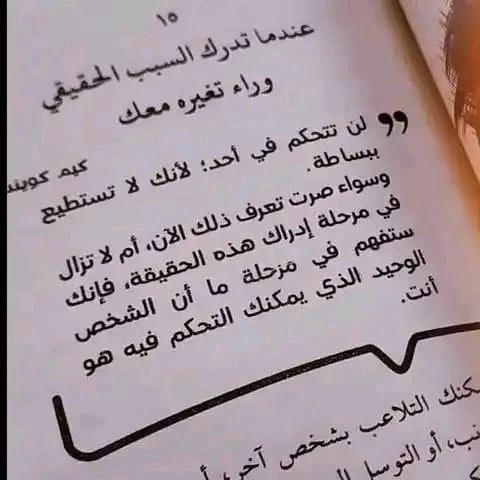 ١٥
عندما تدرك السبب الحقيقي
وراء تغيره معك
لن تتحكم في أحد؛ لأنك لا تستطيع
ببساطة.
كيم
وسواء صرت تعرف ذلك الآن، أم لا تزال
في مرحلة إدراك هذه الحقيقة، فإنك
ستفهم في مَرحلة ما أن الشخص
الوحيد الذي يمكنك التحكم فيه هو
أنت.
التلاعب بشخص آخر،
أو التوسل